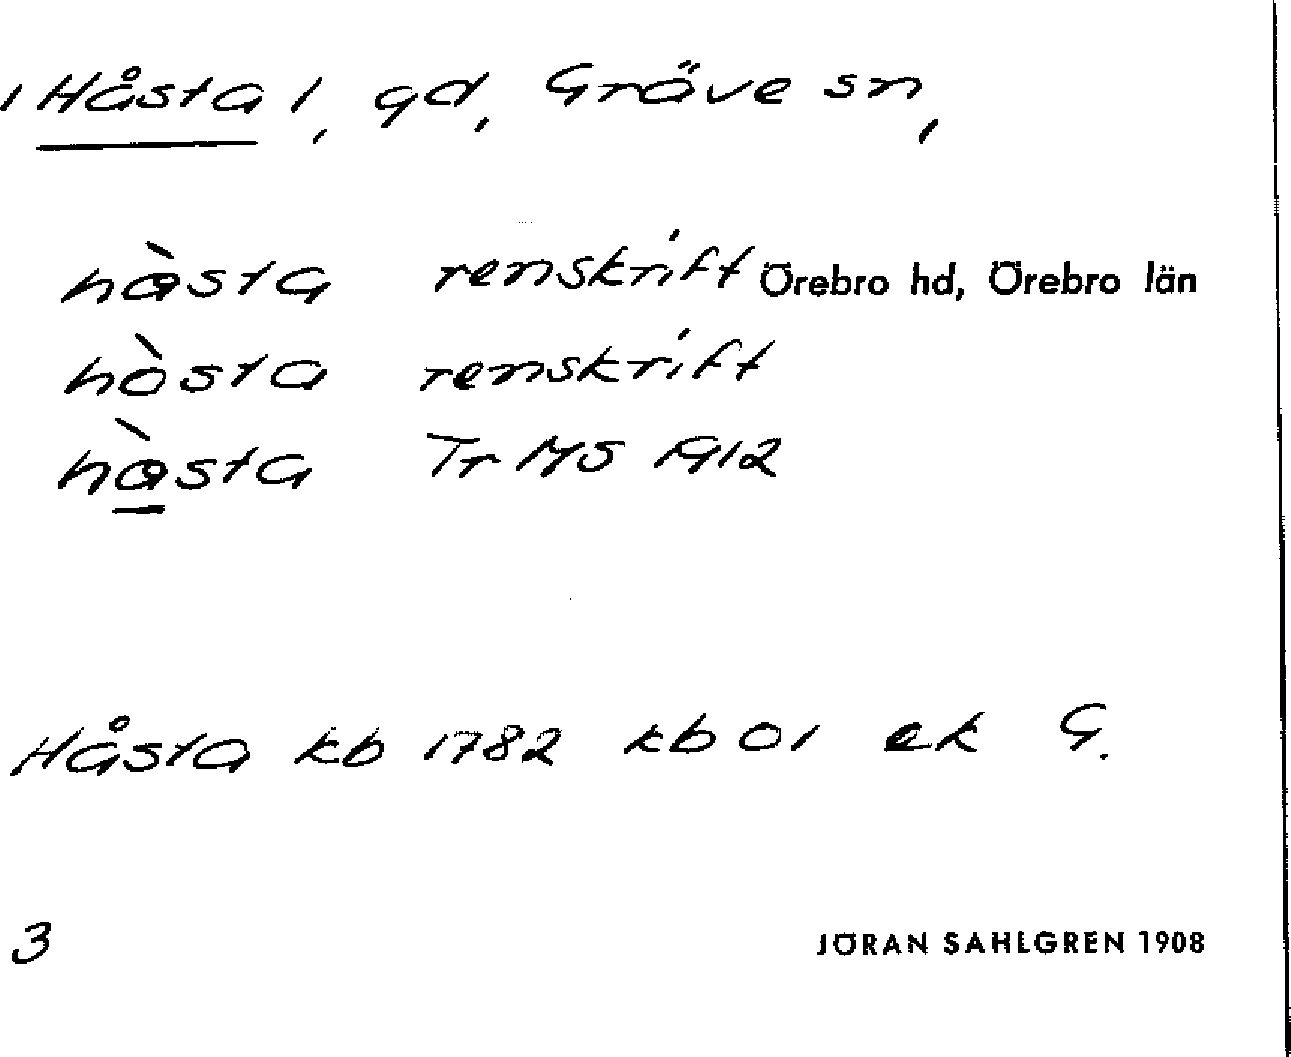 / Håsta /, gd, Gräve sn,
hàsta renskrift Örebro hd, Örebro län
hòsta renskrift
hàsta Tr MS 1912
Håsta kb 1782 kb 01 ek G.
3 JÖRAN SAHLGREN 1908